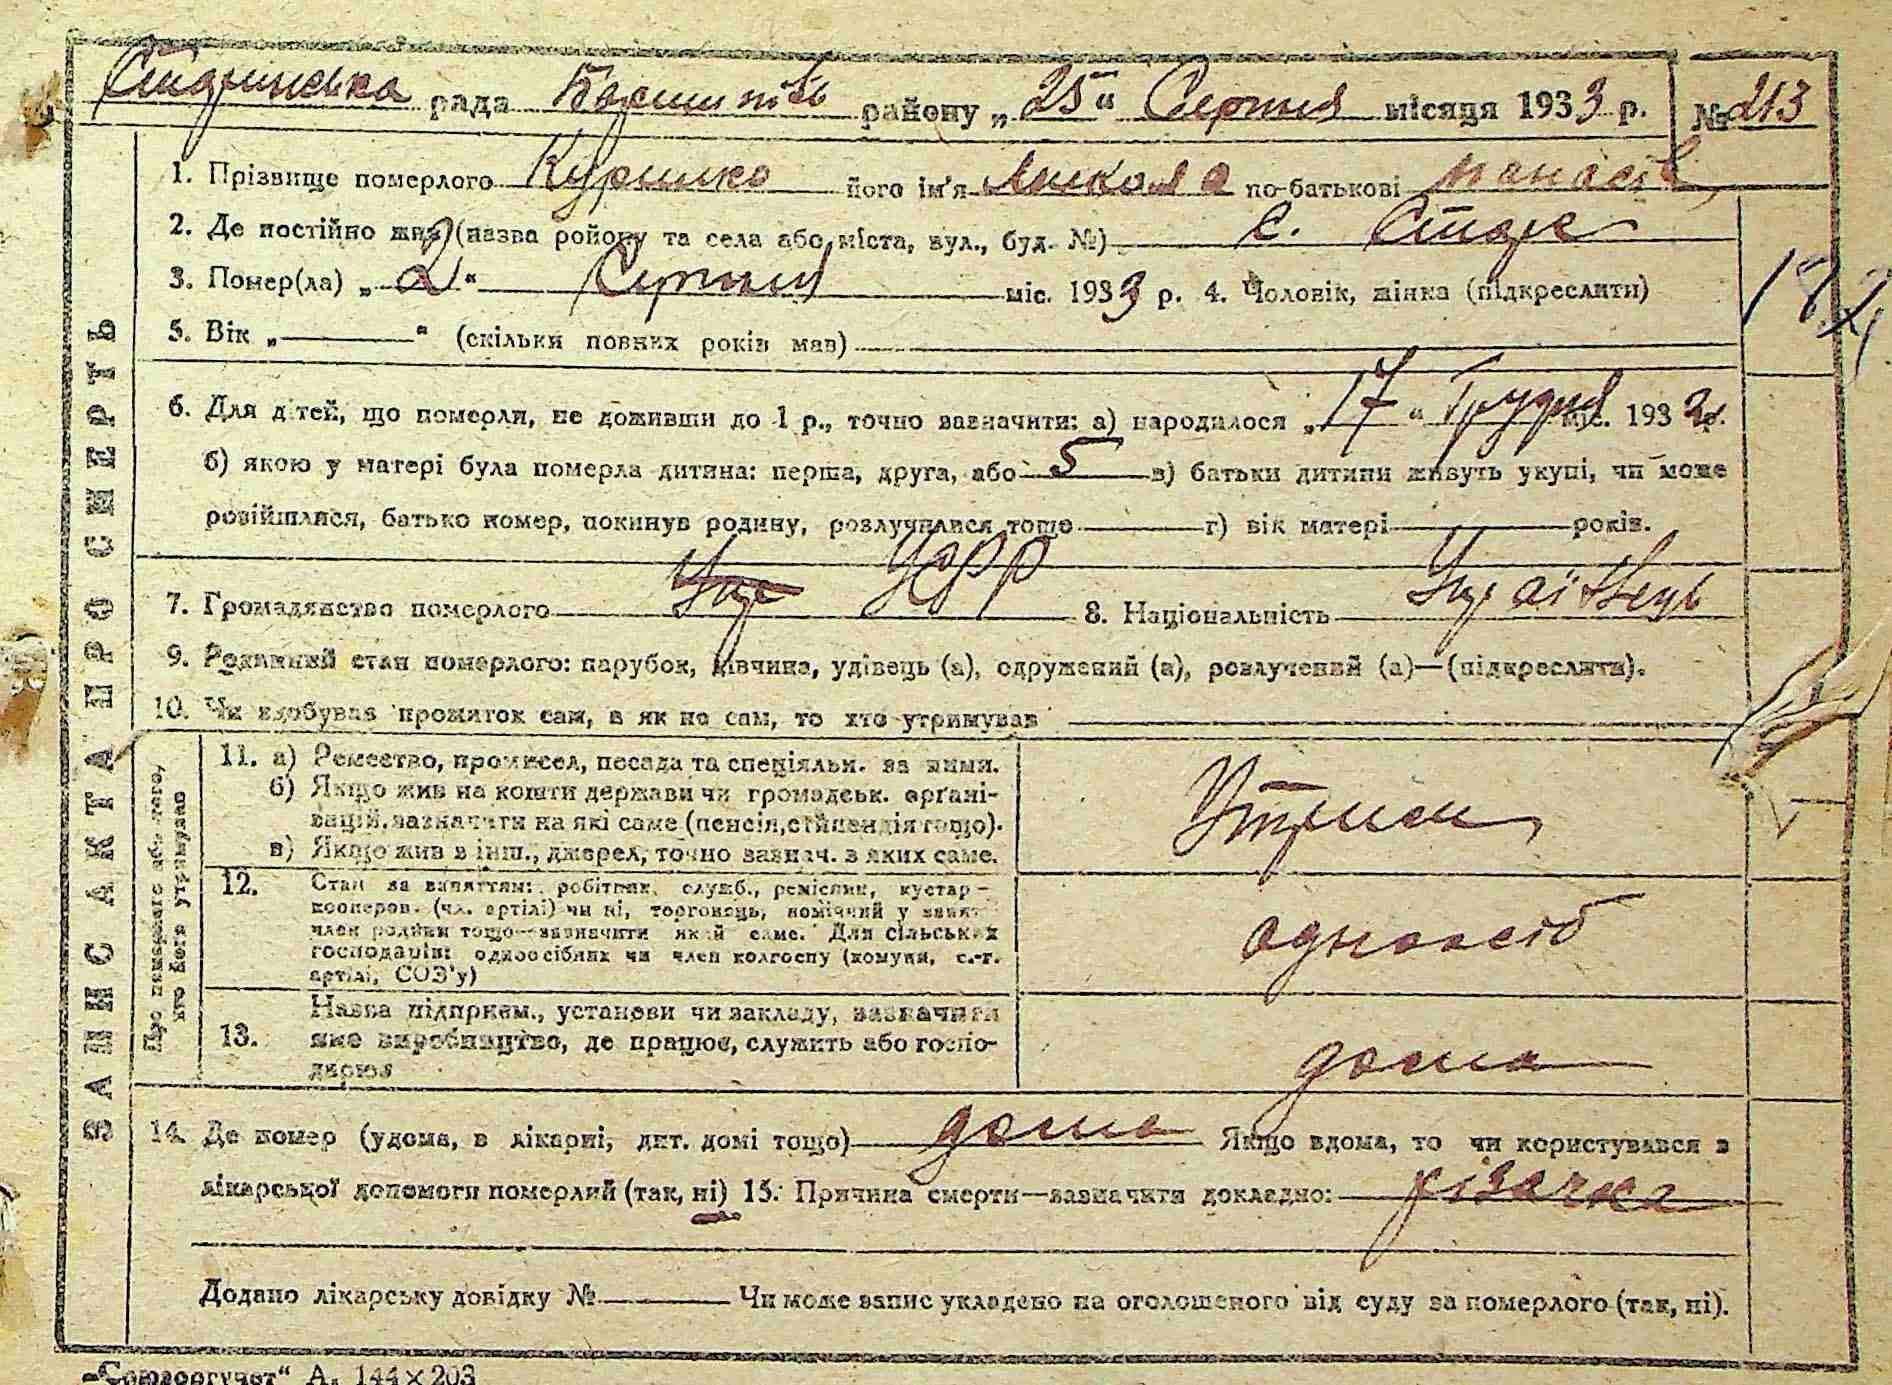 Старинська рада Бориспіль району „25“ Серпня місяця 1933 р. № 213
1. Прізвище померлого Куришко його ім'я Микола по-батькові Панасів
2. Де постійно жив (назва району та села або міста, вул., буд. №) с. Старе
3. Помер(ла) „2“ Серпня міс. 1933 р. 4. Чоловік, жінка (підкреслити)
5. Вік „——“ (скільки повних років мав)
6. Для дітей, що померли, не доживши до 1 р., точно зазначити: а) народилося „17“ Грудня міс. 1932 р.
б) якою у матері була померла дитина: перша, друга, або 5 в) батьки дитини живуть укупі, чи може
розійшлися, батько помер, покинув родину, розлучилися тощо г) вік матері років.
7. Громадянство померлого УСРР 8. Національність Українець
9. Родинний стан померлого: парубок, дівчина, удівець (а), одружений (а), розлучений (а)—(підкреслити).
10. Чи здобував прожиток сам, а як не сам, то хто утримував
11. а) Ремество, промисел, посада та спеціяльн. за ними.
б) Якщо жив на кошти держави чи громадськ. органі-
зацій, зазначити на які саме (пенсія, стипендія тощо).
в) Якщо жив з інш., джерел, точно зазнач. з яких саме.
Утрим
12. Стан за заняттям: робітник, служб., ремісник, кустар-
кооперов. (чл. артілі) чи ні, торговець, помічний у занят.
член родини тощо—зазначити який саме. Для сільських
господарів: одноосібник чи член колгоспу (комуни, с.-г.
артілі, СОЗ'у)
одноосіб
13. Назва підприєм., установи чи закладу, зазначити
яке виробництво, де працює, служить або госпо-
дарює
дома
14. Де помер (удома, в лікарні, дит. домі тощо) дома Якщо вдома, то чи користувався з
лікарської допомоги померлий (так, ні) 15. Причина смерти—зазначити докладно: різачка
Додано лікарську довідку № Чи може запис укладено на оголошеного від суду за померлого (так, ні).
ЗАПИС АКТА ПРО СМЕРТЬ
Про померлого або того,
хто його утримував
„Союзоргучет“ А. 144×203